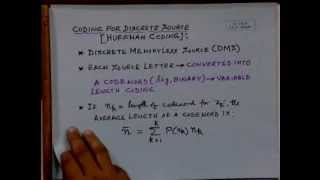 CODING FOR DISCRETE SOURCE
[HUFFMAN CODING]:
• DISCRETE MEMORYLESS SOURCE (DMS)
• EACH SOURCE LETTER → CONVERTED INTO
A CODEWORD (say, BINARY) → VARIABLE
LENGTH CODING
• If nₖ = length of codeword for xₖ, the
AVERAGE LENGTH OF A CODEWORD IS:
n̄ = Σ P(xₖ) nₖ
k=1